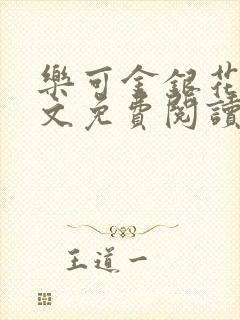 樂可金銀花
文免費閱讀
王道一